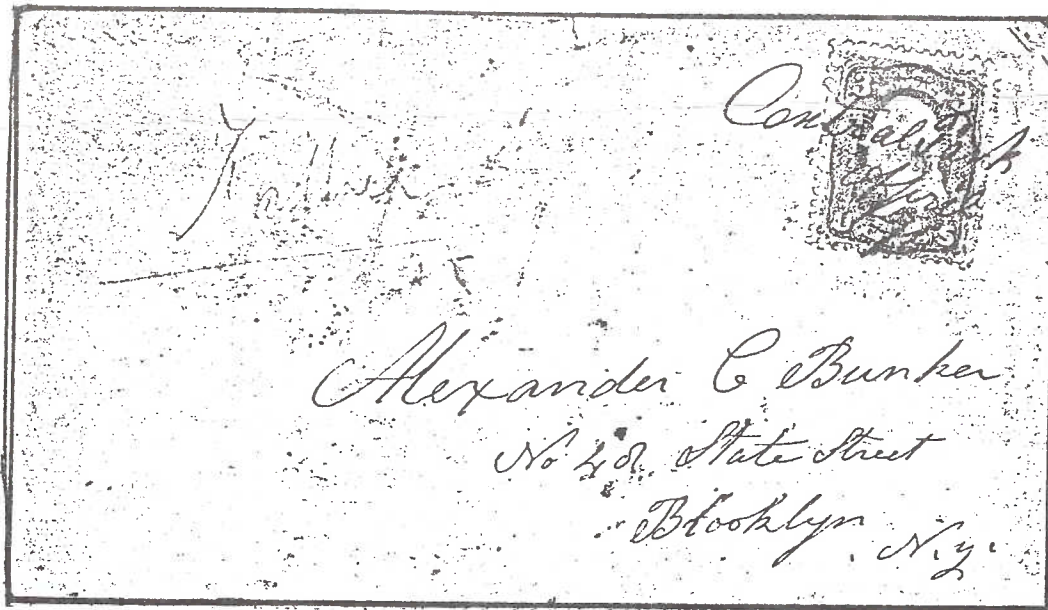 Central Park
Alexander C Bunker
No 48. State Street
Brooklyn
N.y.